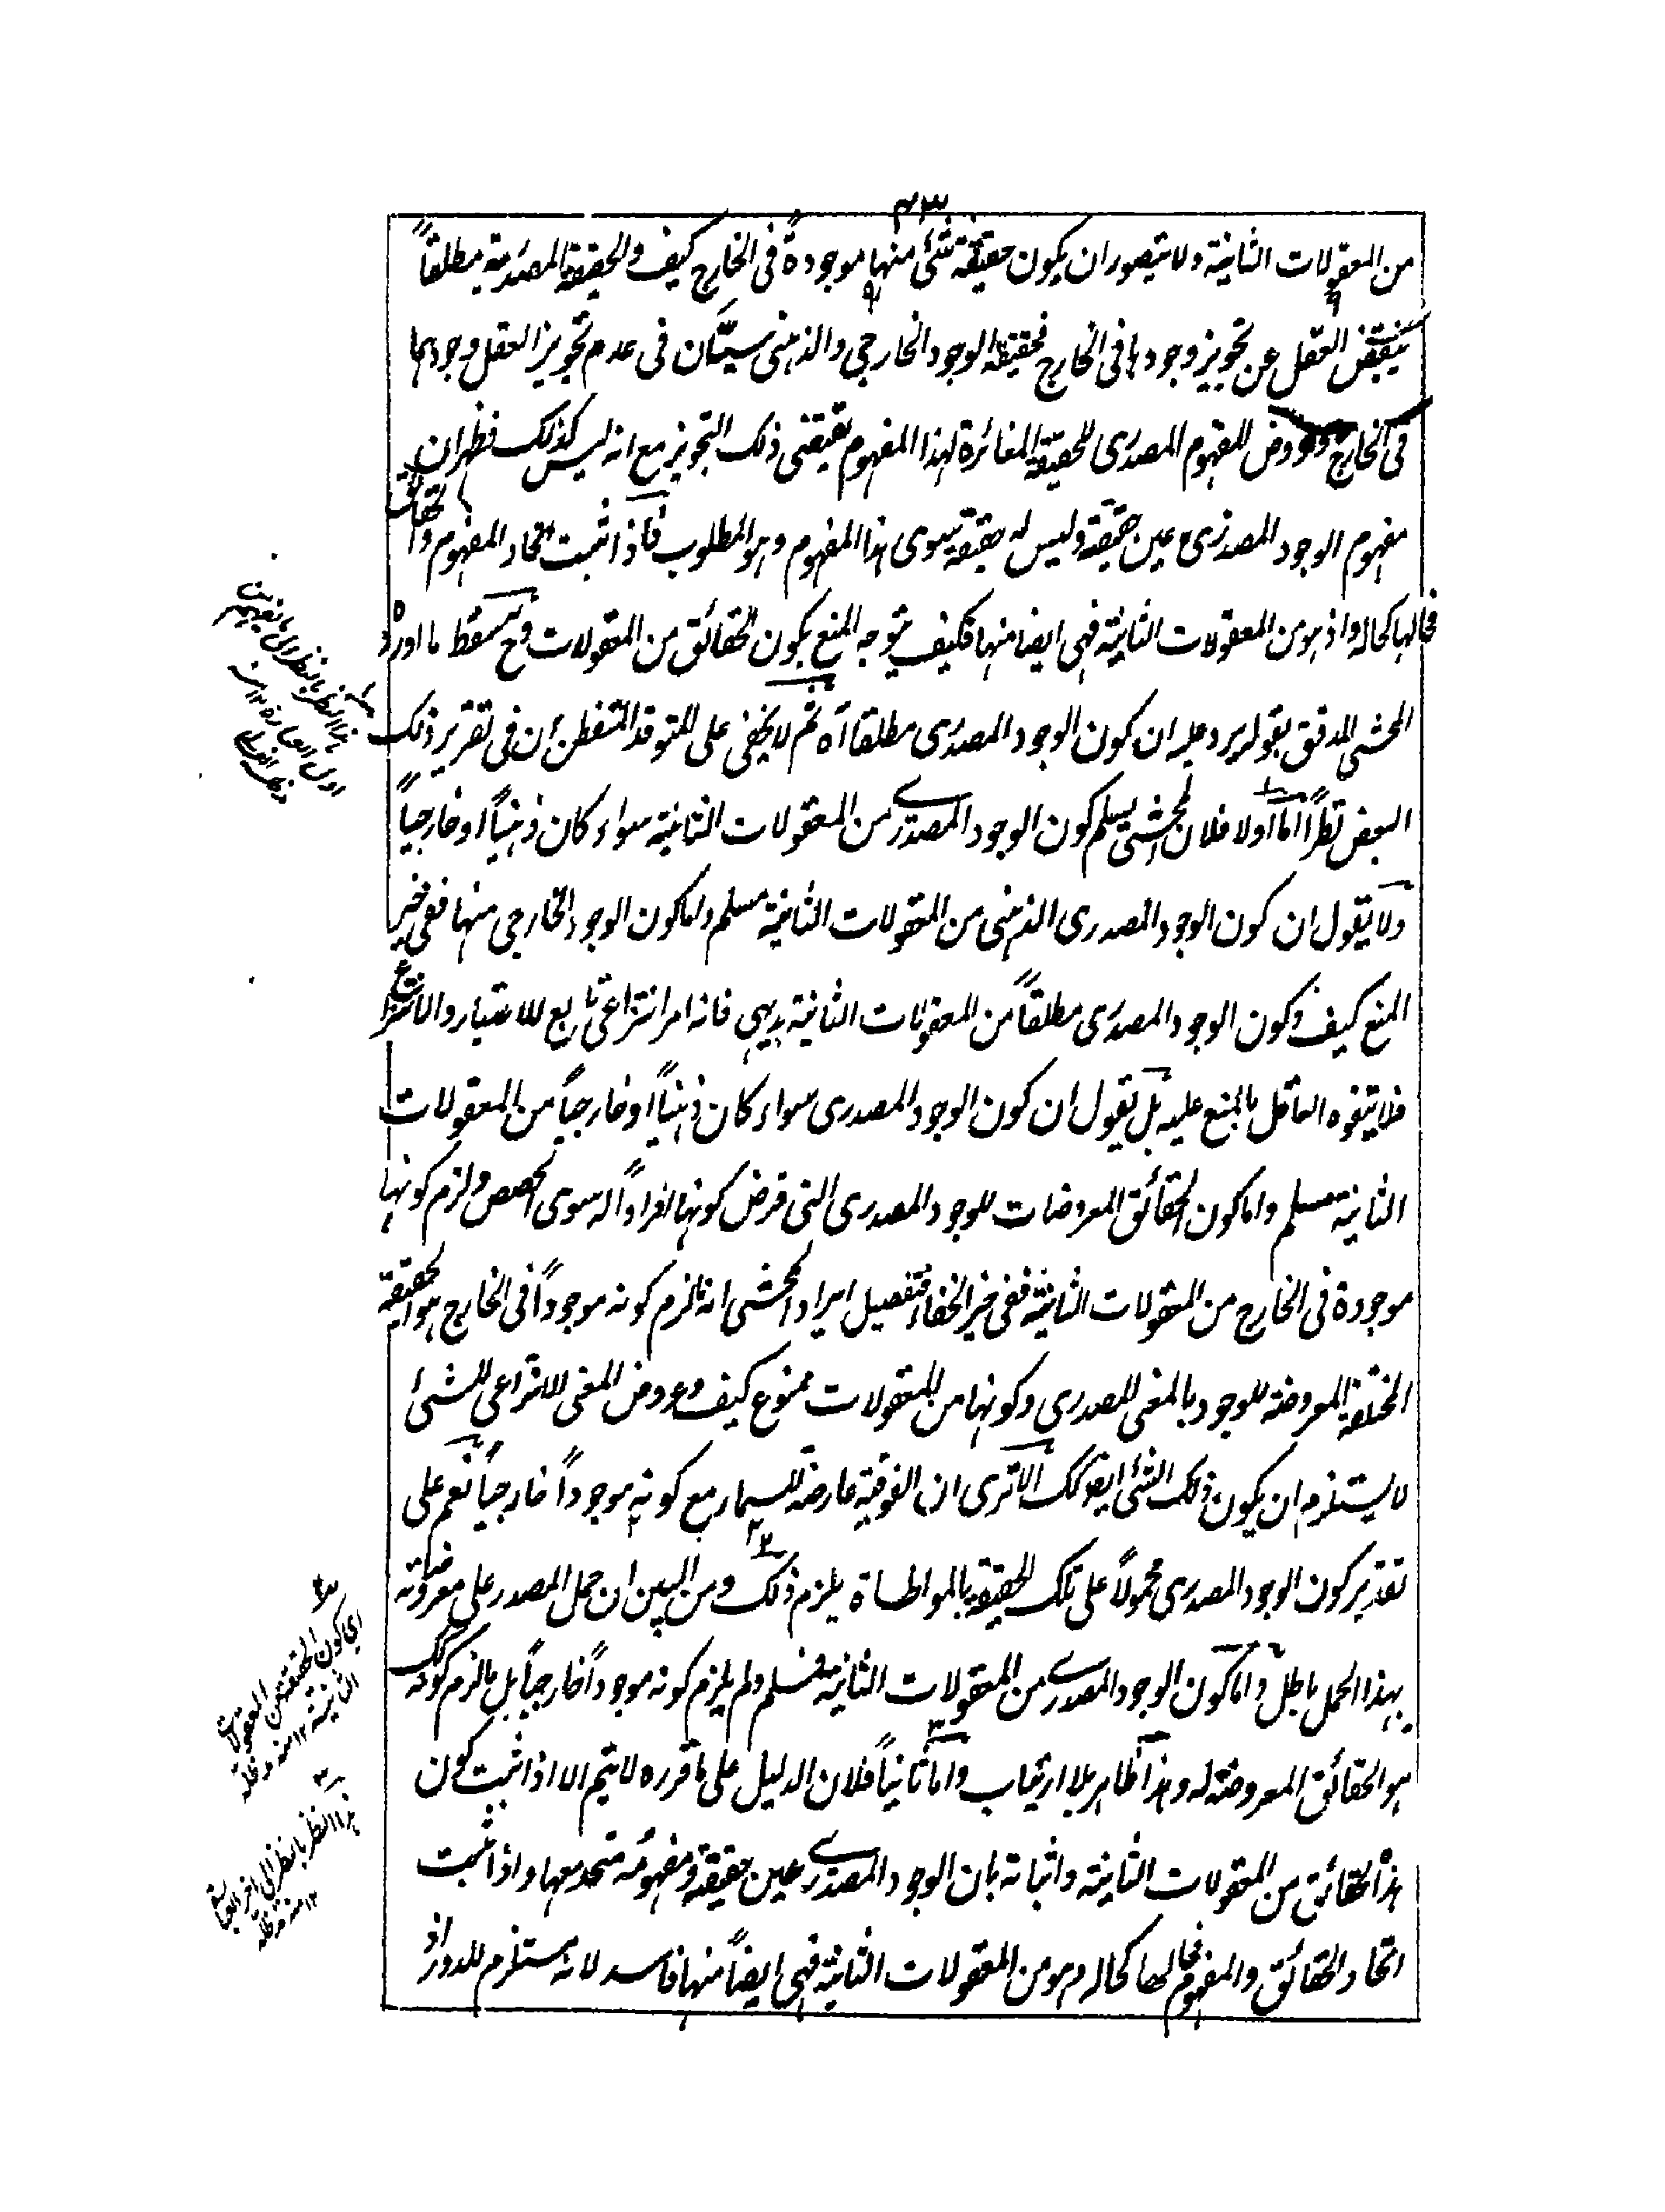 ٤٣
من المعقولات الثانية ولا يتصور ان يكون حقيقة شئ منها موجودة فى الخارج كيف والحقيقة المصدرية مطلقاً
ينقبض العقل عن تجويز وجودها فى الخارج فحقيقة الوجود الخارجي والذهنى سيّان فى عدم تجويز العقل وجودهما
فى الخارج وعروض المفهوم المصدرى للحقيقة المغائرة لهذا المفهوم يقتضى ذلك التجويز مع انه ليس كذلك فظهر ان
مفهوم الوجود المصدرى عين حقيقة وليس له حقيقة سوى هذا المفهوم وهو المطلوب فاذا ثبت اتحاد المفهوم والحقائق
فحالها كحاله واذ هو من المعقولات الثانية فهى ايضا منها فكيف يتوجه المنع بكون الحقائق من المعقولات وح سقط ما اورده
المحشى المدقق بقوله يرد عليه ان كون الوجود المصدرى مطلقا اه ثم لا يخفى على المتوقد المتفطن ان فى تقرير ذلك
البعض نظراً اما اولا فلان المحشى يسلم كون الوجود المصدرى من المعقولات الثانية سواء كان ذهنياً او خارجياً
ولا يقول ان كون الوجود المصدرى الذهنى من المعقولات الثانية مسلم واما كون الوجود الخارجى منها ففى حيز
المنع كيف وكون الوجود المصدرى مطلقاً من المعقولات الثانية بديهى فانه امر انتزاعى تابع للاعتبار والانتزاع
فلا يتفوه العاقل بالمنع عليه بل يقول ان كون الوجود المصدرى سواء كان ذهنياً او خارجياً من المعقولات
الثانية مسلم واما كون الحقائق المعروضات للوجود المصدرى التى فرض كونها افراداً له سوى الحصص ولزم كونها
موجودة فى الخارج من المعقولات الثانية ففى حيز الخفاء فتفصيل ايراد المحشى ان ما لزم كونه موجوداً فى الخارج هو الحقيقة
المختلفة المعروضة للوجود بالمعنى المصدرى وكونها من المعقولات ممنوع كيف وعروض المعنى الانتزاعى للشئ
لا يستلزم ان يكون ذلك الشئ ايضا كك الا ترى ان الفوقية عارضة للسماء مع كونه موجوداً خارجياً نعم على
تقدير كون الوجود المصدرى محمولاً على تلك الحقيقة بالمواطاة يلزم ذلك ومن البين ان حمل المصدر على معروضاته
بهذا الحمل باطل واما كون الوجود المصدرى من المعقولات الثانية فمسلم ولم يلزم كونه موجوداً خارجياً بل ما لزم كونه كك
هو الحقائق المعروضة له وهذا ظاهر بلا ارتياب واما ثانياً فلان الدليل على ما قرره لا يتم الا اذا ثبت كون
هذه الحقائق من المعقولات الثانية واثباته بان الوجود المصدرى عين حقيقة ومفهومه متحد معها واذا ثبت
اتحاد الحقائق والمفهوم فحالها كحاله وهو من المعقولات الثانية فهى ايضاً منها فاسد لانه مستلزم للدور اذ
هذا النظر بالنظر الى
اول العبارة ١٢ منه
اى كون الحقيقة من المعقولات
الثانية ١٢ منه مدظله
هذا النظر بالنظر الى آخر العبارة
١٢ منه مدظله